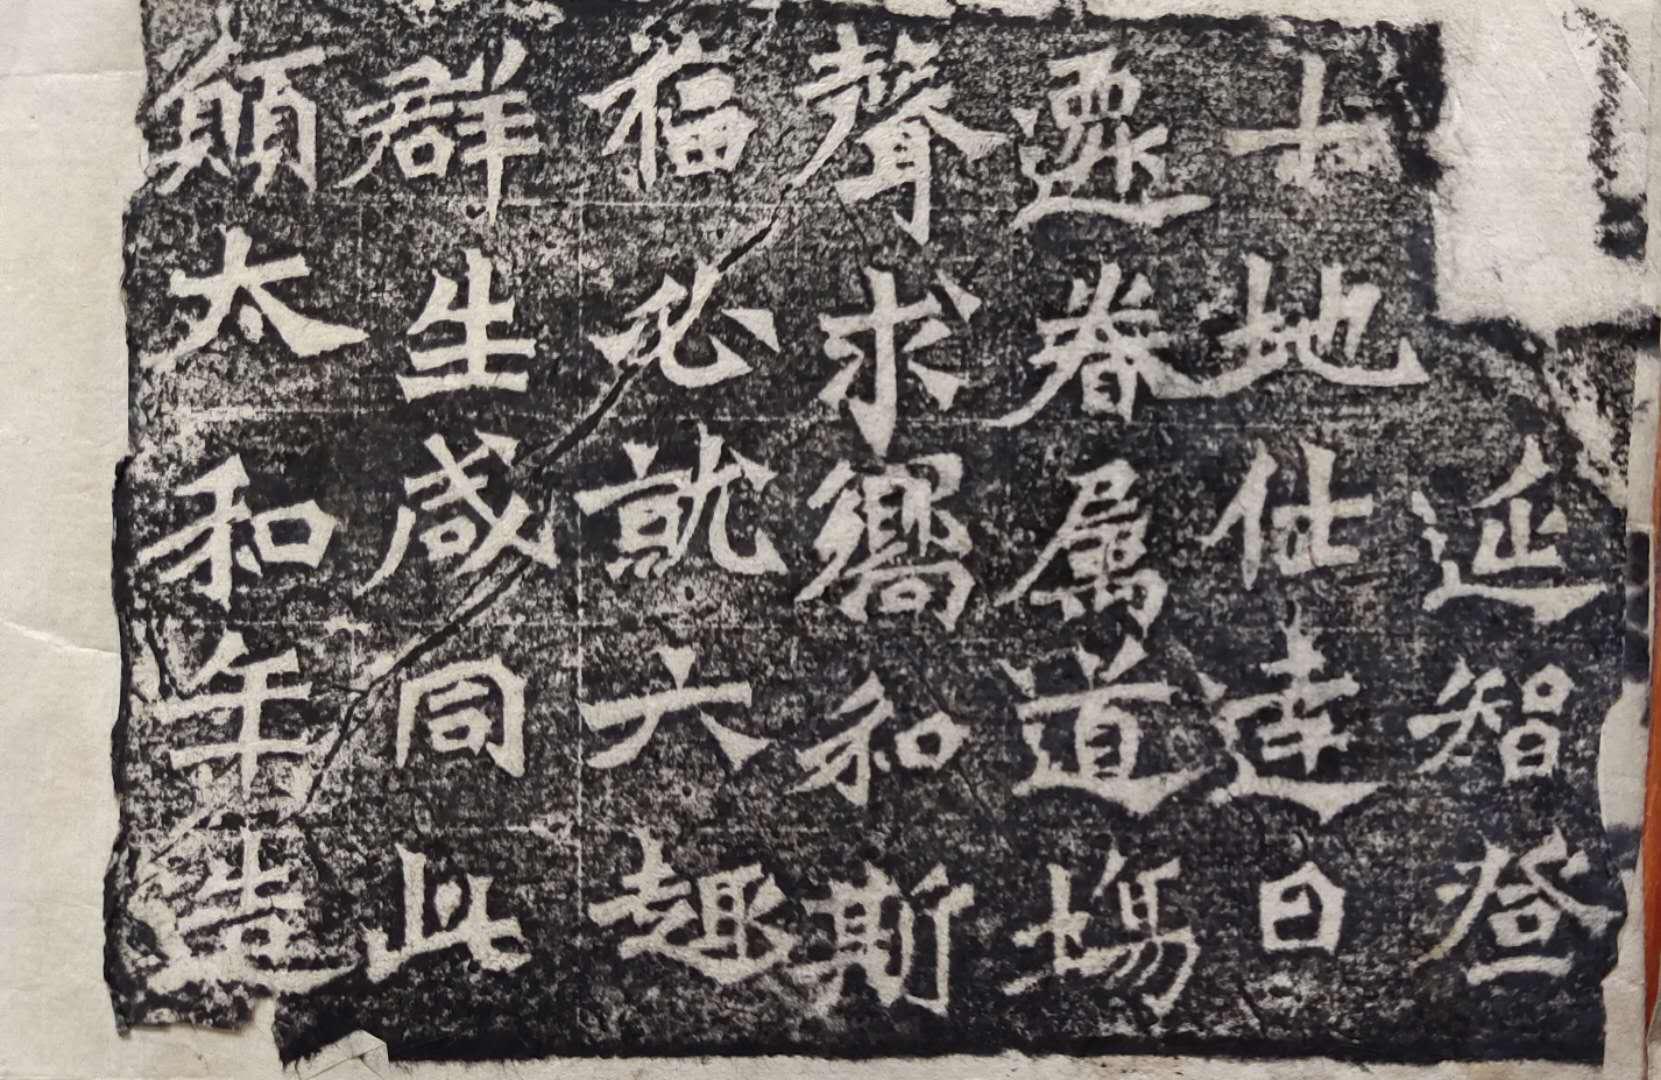 延智登
十地仕達日
遷眷属道場
聲求嚮和斯
福必就六趣
群生咸同此
願太和年造